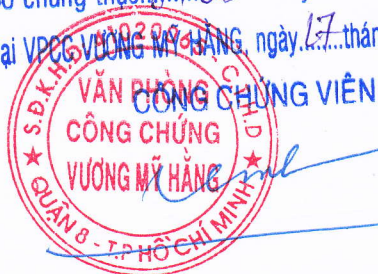 chứng thực
ại VPCC VƯƠNG MỸ HẰNG, ngày 17 tháng
CÔNG CHỨNG VIÊN
VĂN PHÒNG
CÔNG CHỨNG
VƯƠNG MỸ HẰNG
S.Đ.K.H.Đ
C.C.H.D
QUẬN 8 - T.P HỒ CHÍ MINH